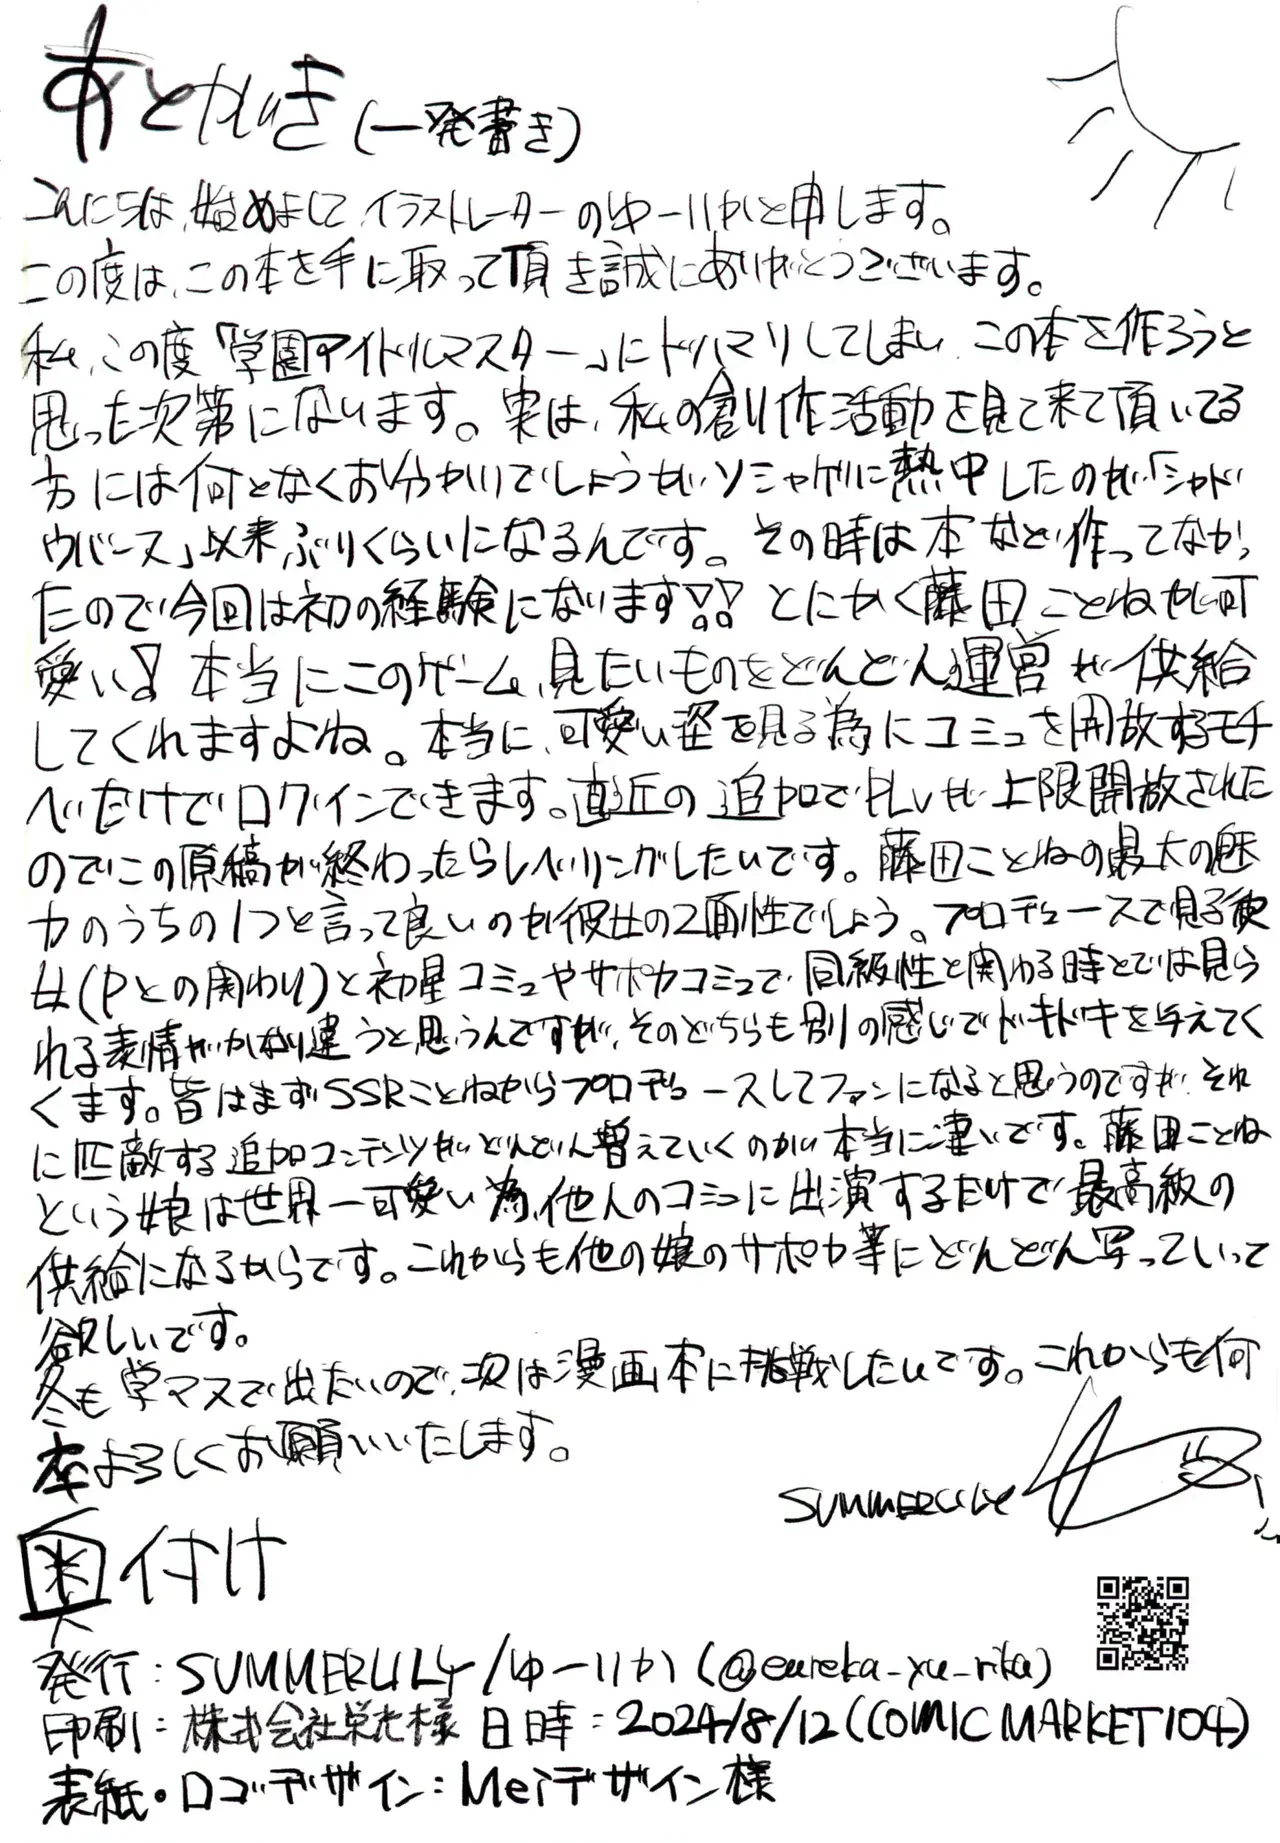 あとがき(一発書き)
こんにちは、始めまして、イラストレーターのゆーりかと申します。
この度は、この本を手に取って頂き誠にありがとうございます。
私、この度「学園アイドルマスター」にドハマりしてしまい、この本を作ろうと
思った次第になります。実は、私の創作活動を見て来て頂いてる
方には何となくお分かりでしょうがソシャゲに熱中したのが「シャド
ウバース」以来ぶりくらいになるんです。その時は本など作ってなかっ
たので今回は初の経験になります!! とにかく藤田ことねが可
愛い! 本当にこのゲーム、見たいものをどんどん運営が供給
してくれますよね。本当に、可愛い姿を見る為にコミュを開放するモチ
ベだけでログインできます。直近の追加でPLvが上限開放された
のでこの原稿が終わったらレベリングがしたいです。藤田ことねの最大の魅
力のうちの1つと言って良いのが彼女の2面性でしょう。プロデュースで見る彼
女(Pとの関わり)と初星コミュやサポカコミュで、同級性と関わる時とでは見ら
れる表情がかなり違うと思うんですが、そのどちらも別の感じでドキドキを与えてく
くます。皆はまずSSRことねからプロデュースしてファンになると思うのですが、それ
に匹敵する追加コンテンツがどんどん増えていくのが本当に凄いです。藤田ことね
という娘は世界一可愛い為、他人のコミュに出演するだけで最高級の
供給になるからです。これからも他の娘のサポカ等にどんどん写っていって
欲しいです。
冬も学マスで出たいので、次は漫画本に挑戦したいです。これからも何
卒よろしくお願いいたします。
SUMMERLILY
奥付け
発行:SUMMERLILY/ゆーりか(@eureka_yu_rika)
印刷:株式会社栄光様 日時:2024/8/12(COMIC MARKET104)
表紙・ロゴデザイン:Meiデザイン様